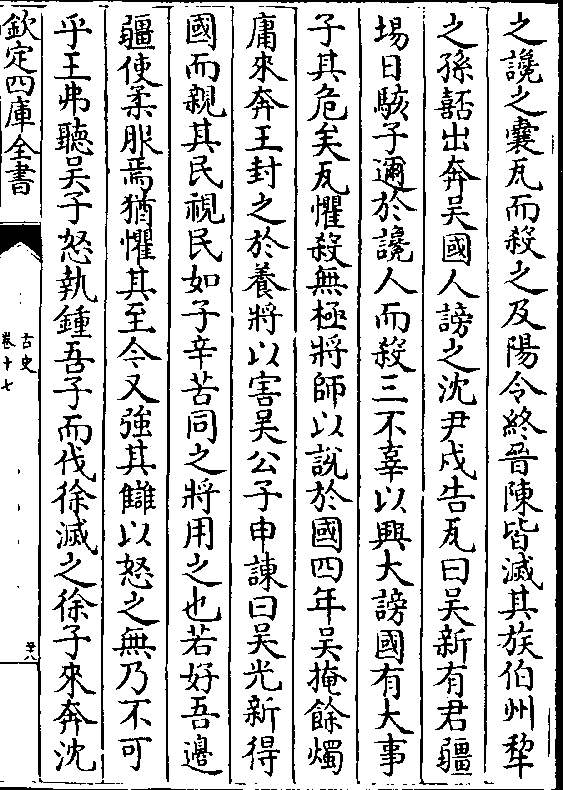 之讒之囊瓦而殺之及陽令終晉陳皆滅其族伯州犂
之孫嚭出奔吳國人謗之沈尹戍告瓦曰吳新有君疆
埸日駭子邇於讒人而殺三不辜以興大謗國有大事
子其危矣瓦懼殺無極將師以說於國四年吳掩餘燭
庸來奔王封之於養將以害吳公子申諫曰吳光新得
國而親其民視民如子辛苦同之將用之也若好吾邊
疆使柔服焉猶懼其至今又強其讎以怒之無乃不可
乎王弗聽吳子怒執鍾吾子而伐徐滅之徐子來奔沈
欽定四庫全書
古史
卷十七